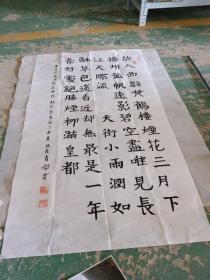 故人西辭黄鶴樓煙花三月下
揚州孤帆遠影碧空盡唯見長
江天際流 天街小雨潤如
酥草色遥看近却無最是一年
春好處絕勝煙柳滿皇都